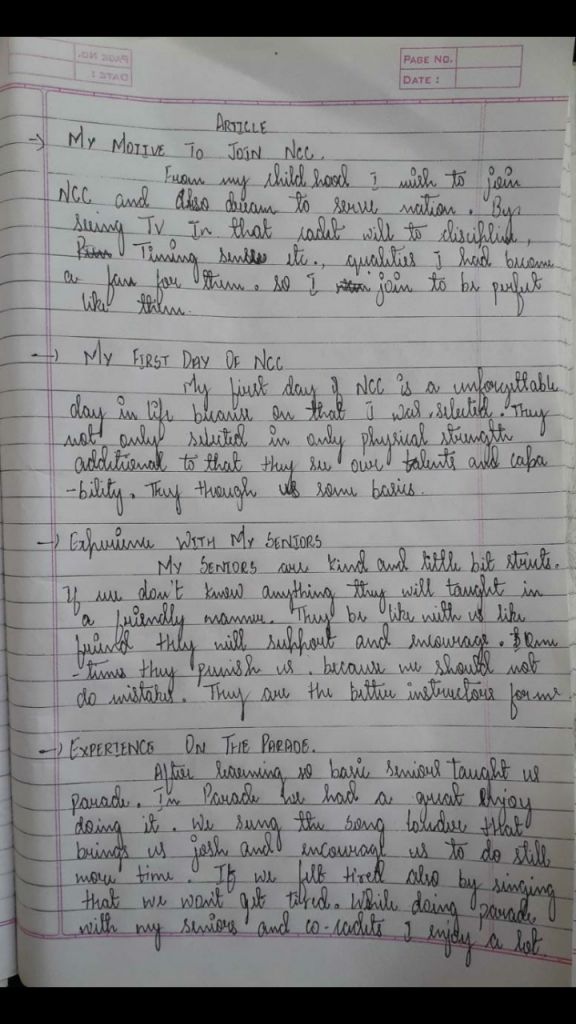 PAGE NO.
DATE :
PAGE NO.
DATE :
ARTICLE
→ MY MOTIVE TO JOIN NCC.
From my child hood I wish to join
NCC and also dream to serve nation. By
seeing TV In that cadet will to discipline,
Timing sense etc., qualities I had become
a fan for them. so I join to be perfect
like them.
→ MY FIRST DAY OF NCC
My first day of NCC is a unforgettable
day in life because on that I was selected. They
not only selected in only physical strength
additional to that they see own talents and capa
-bility. They though us some basics.
→ Experience WITH MY SENIORS
MY SENIORS are kind and little bit stricts.
If we don't know anything they will taught in
a friendly manner. They be like with us like
friend they will support and encourage. Som
-time they punish us. because we should not
do mistakes. They are the better instructors for me
→ EXPERIENCE ON THE PARADE.
After learning so basic seniors taught us
parade. In Parade we had a great enjoy
doing it. We sung the song louder that
brings us josh and encourage us to do still
more time. If we felt tired also by singing
that we wont get tired. While doing parade
with my seniors and co-cadets I enjoy a lot.